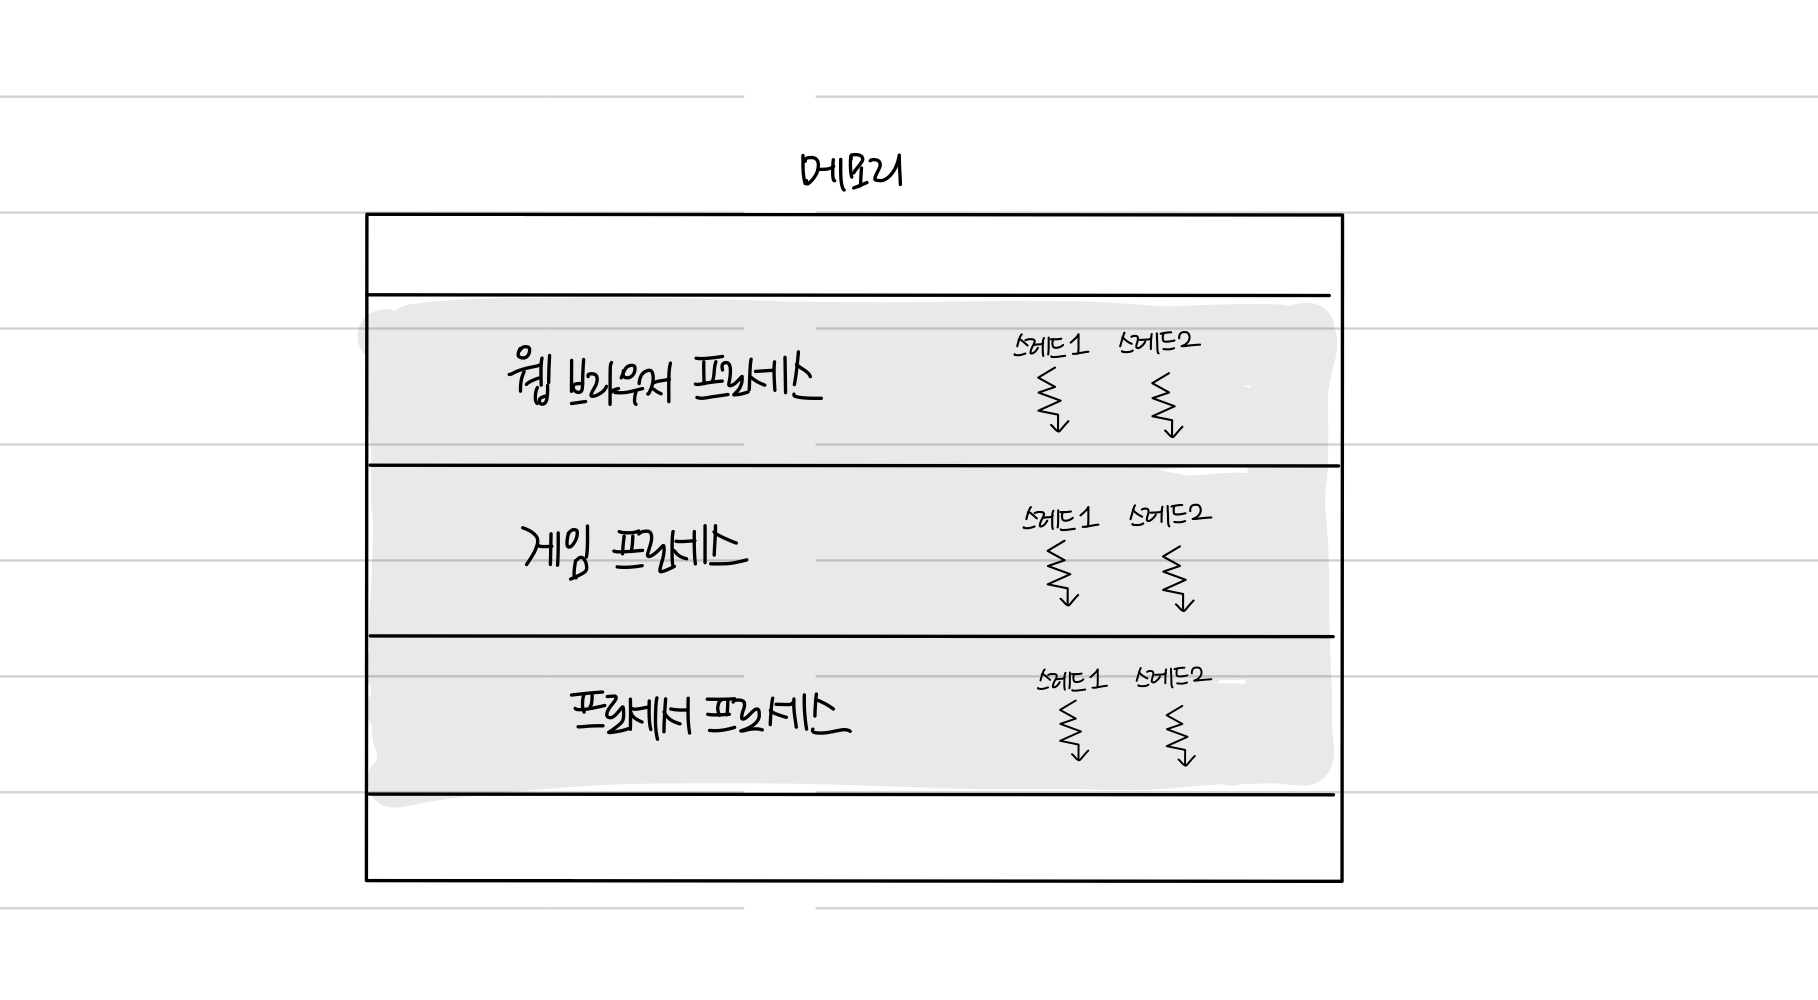 메모리
웹 브라우저 프로세스
스레드1 스레드2
게임 프로세스
스레드1 스레드2
프로세서 프로세스
스레드1 스레드2